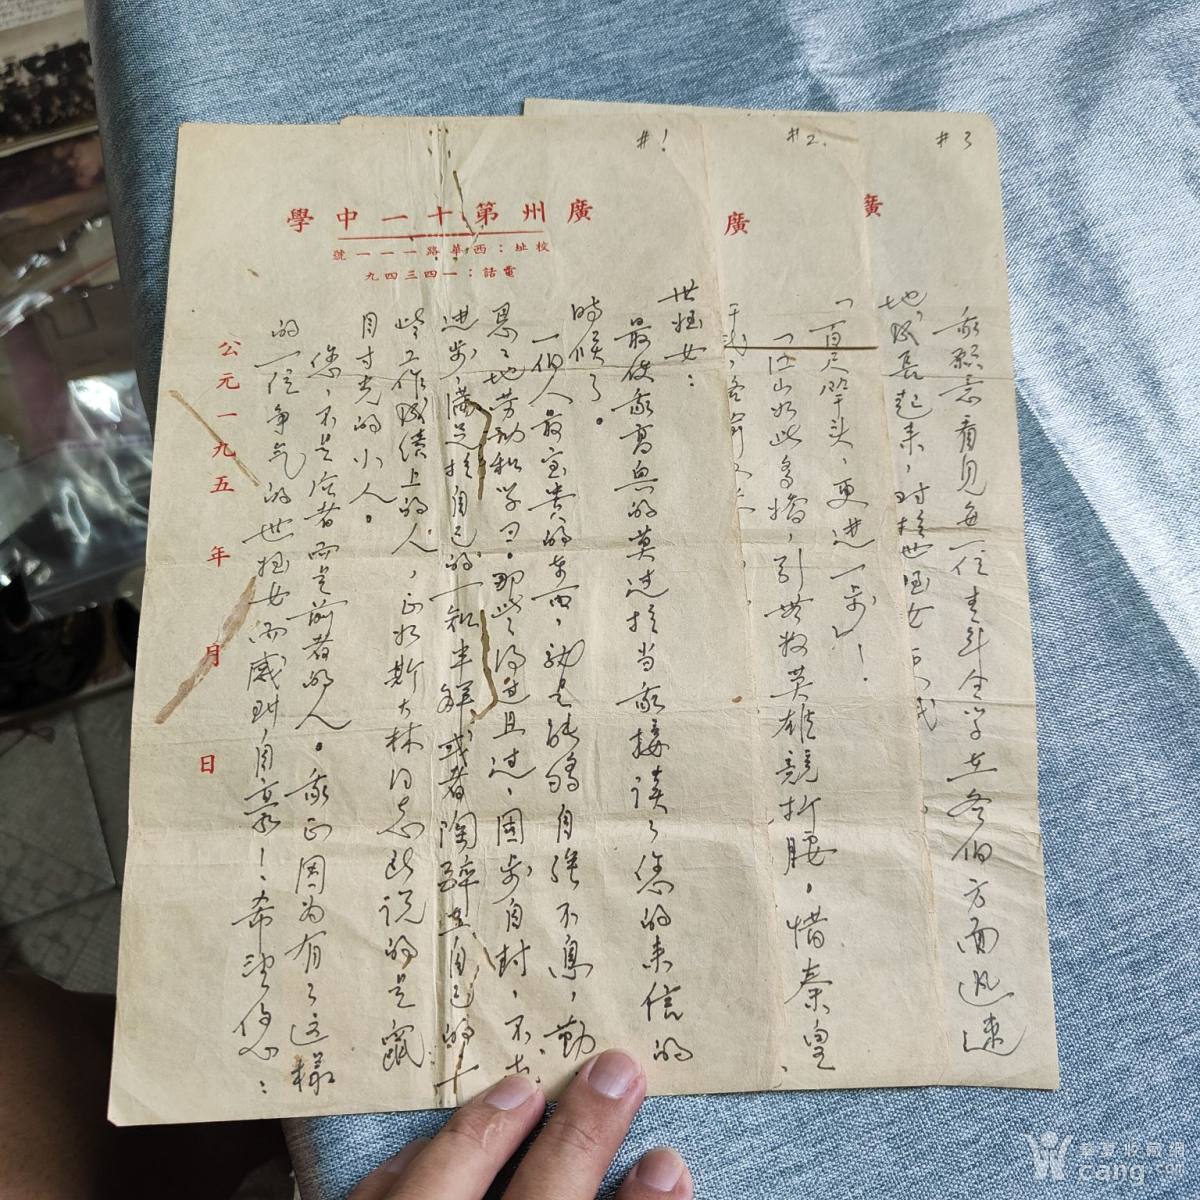 #1
廣州第十一中學
校址：西華路一一一號
電話：一四三四九
世姪女：
最使我高兴的莫过於当我接读了您的来信的
時候了。
一個人最宝贵的东西，就是能夠自強不息，勤
恳地劳动和学习。那些得过且过，固步自封，不去
进步，满足於自己的一知半解或者陶醉在自己的一
些工作成绩上的人，正如斯大林同志所说的是鼠
目寸光的小人。
您，不是后者而是前者的人。我正因为有了这樣
的一位争气的世姪女而感到自豪！希望你：
公元一九五 年 月 日
#2
廣
「百尺竿头，更进一步」！
「江山如此多嬌，引無数英雄競折腰，惜秦皇
#3
廣
我愿意看见每一位青年同学在各個方面迅速
地成長起来，对於世姪女